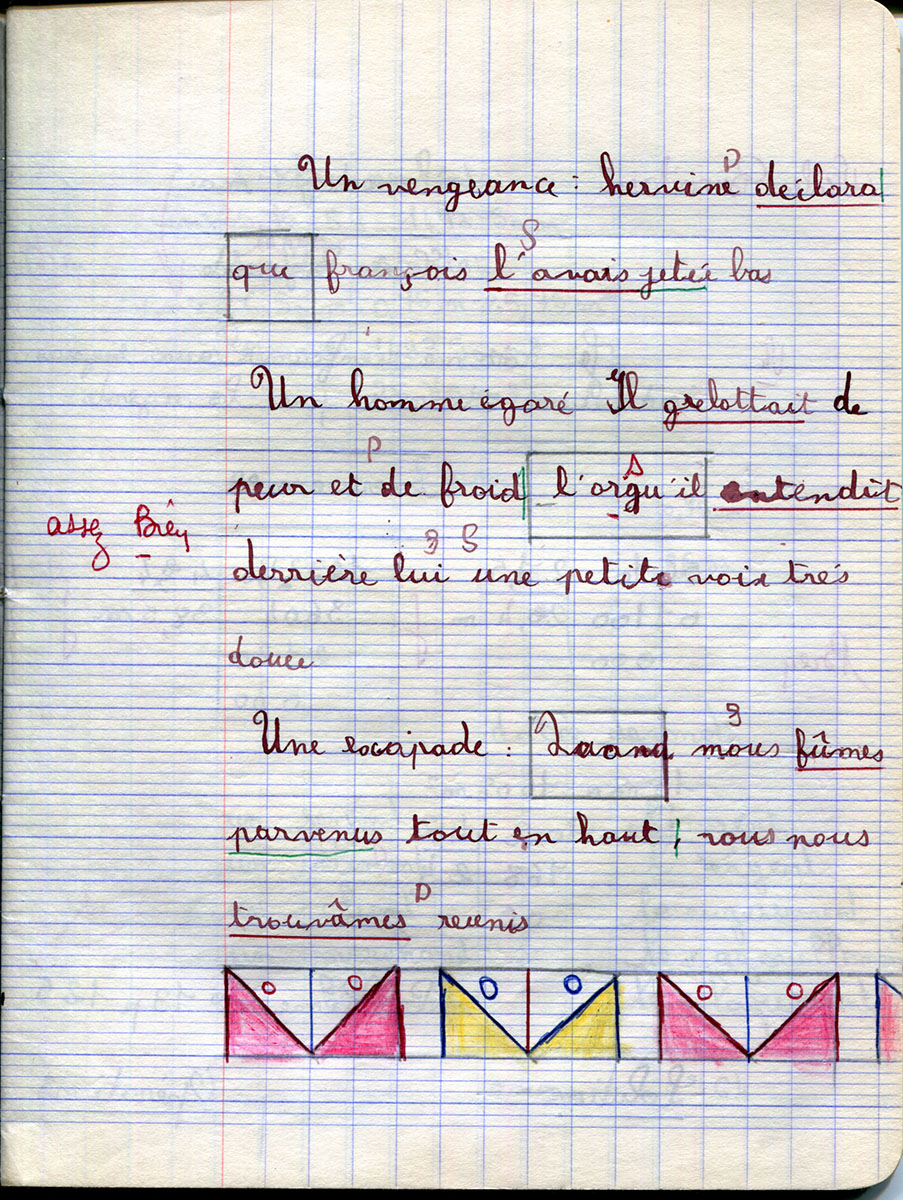 Un vengeance : hervine déclara
D
que françois l'avais jetée bas
S
Un homme égaré Il grelottait de
peur et de froid l'orqu'il entendit
P
assez Bien
derrière lui une petite voix très
S
douce
Une escapade : Quand nous fûmes
parvenus tout en haut, nous nous
trouvâmes reunis
D